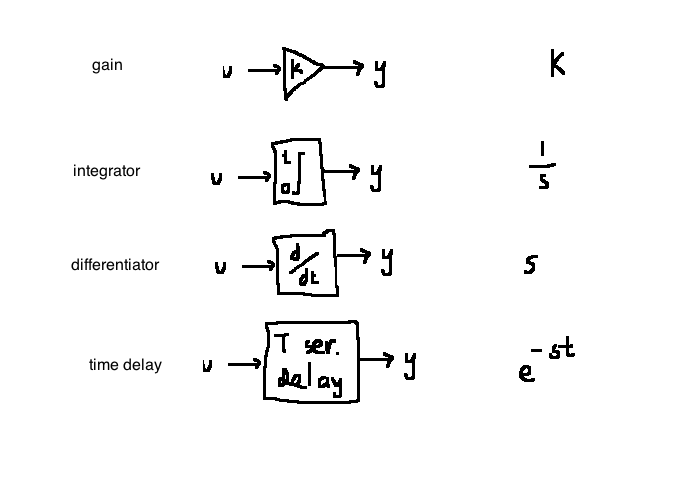 gain u k y K
integrator u t ∫ 0 y 1/s
differentiator u d/dt y s
time delay u T ser. delay y e^-st